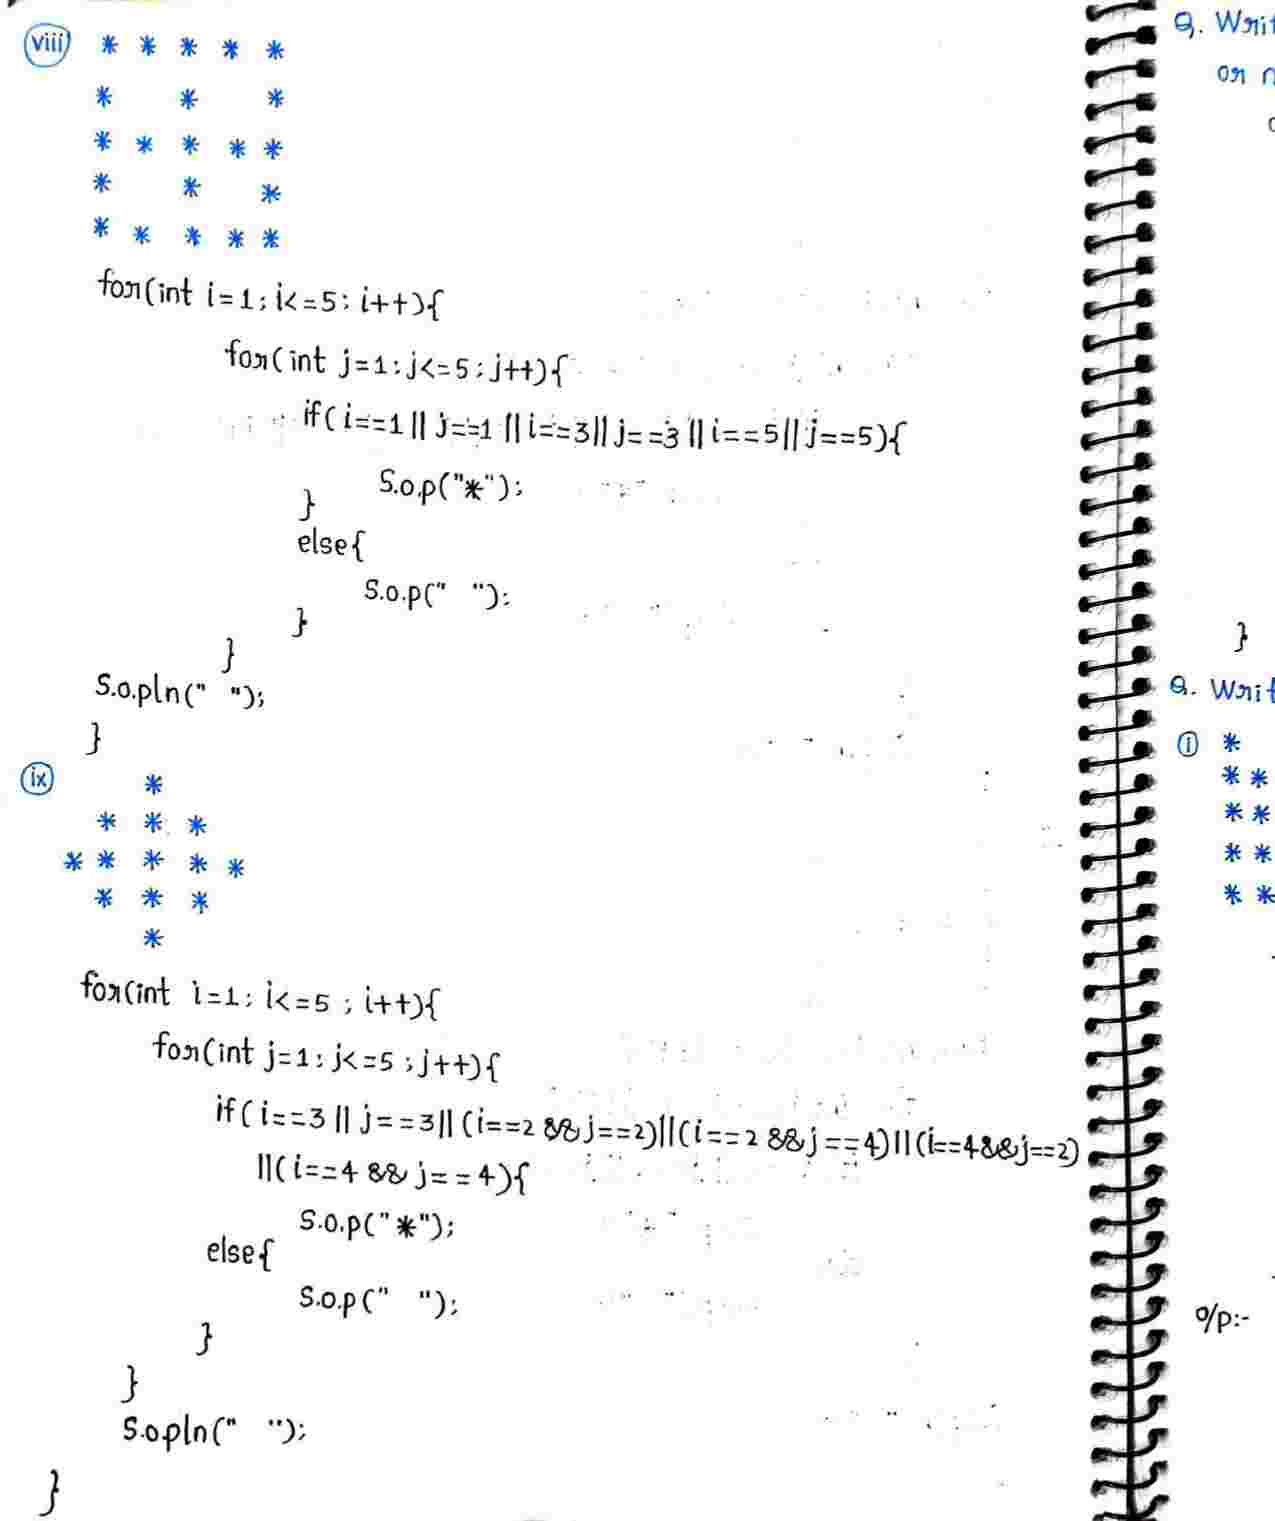 viii * * * * *
* * *
* * * * *
* * *
* * * * *
for(int i=1; i<=5; i++){
for(int j=1; j<=5; j++){
if(i==1 || j==1 || i==3 || j==3 || i==5 || j==5){
S.o.p("*");
}
else{
S.o.p(" ");
}
}
S.o.pln(" ");
}
ix *
* * *
* * * * *
* * *
*
for(int i=1; i<=5 ; i++){
for(int j=1; j<=5 ; j++){
if(i==3 || j==3 || (i==2 && j==2) || (i==2 && j==4) || (i==4 && j==2)
|| (i==4 && j==4){
S.o.p("*");
else{
S.o.p(" ");
}
}
S.opln(" ");
}
Q. Writ
or
}
Q. Writ
i *
* *
* *
* *
* *
o/p:-